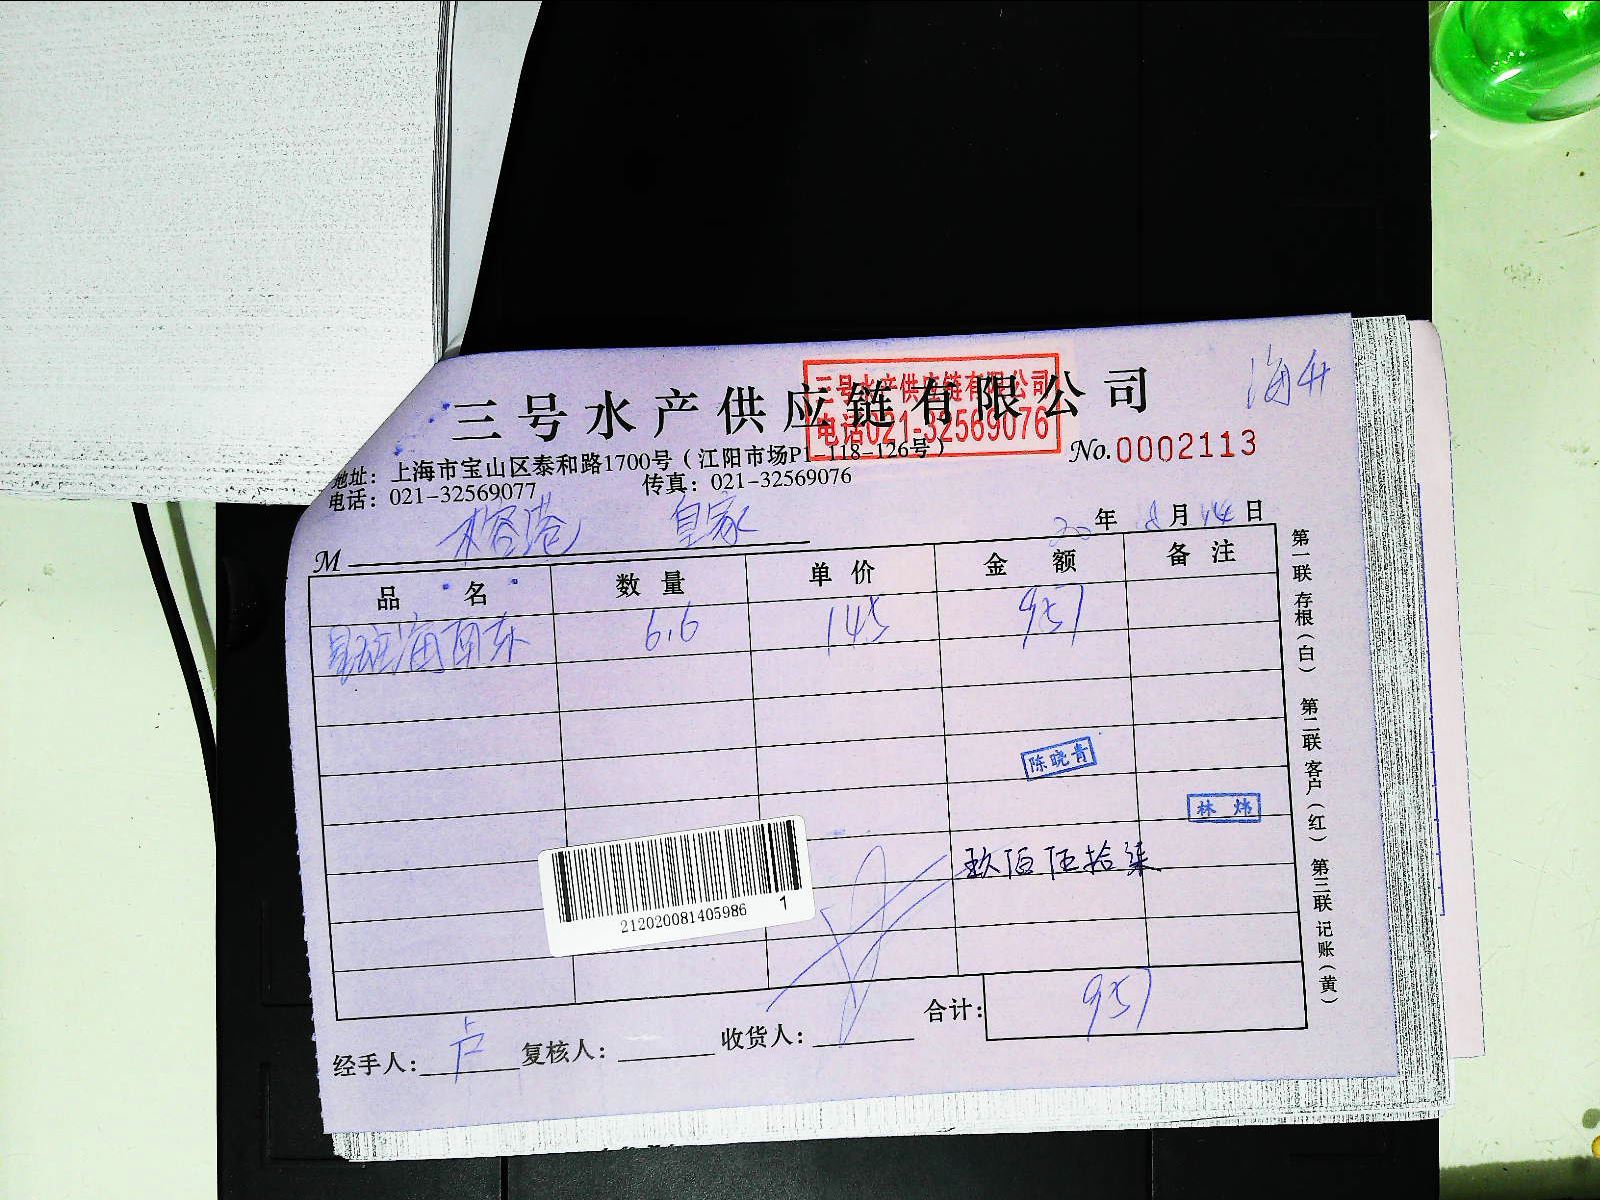 海升
三号水产供应链有限公司
三号水产供应链有限公司
电话021-32569076
地址：上海市宝山区泰和路1700号（江阳市场P1-118-126号）
No.0002113
电话：021-32569077 传真：021-32569076
M 榕港 皇家
20年 8月 14日
品 名 数 量 单 价 金 额 备 注
星斑海南东 6.6 145 957
陈晓青
林 炜
玖佰伍拾柒
212020081405986 1
合计： 957
经手人：卢 复核人： 收货人：
第一联 存根（白） 第二联 客户（红） 第三联 记账（黄）